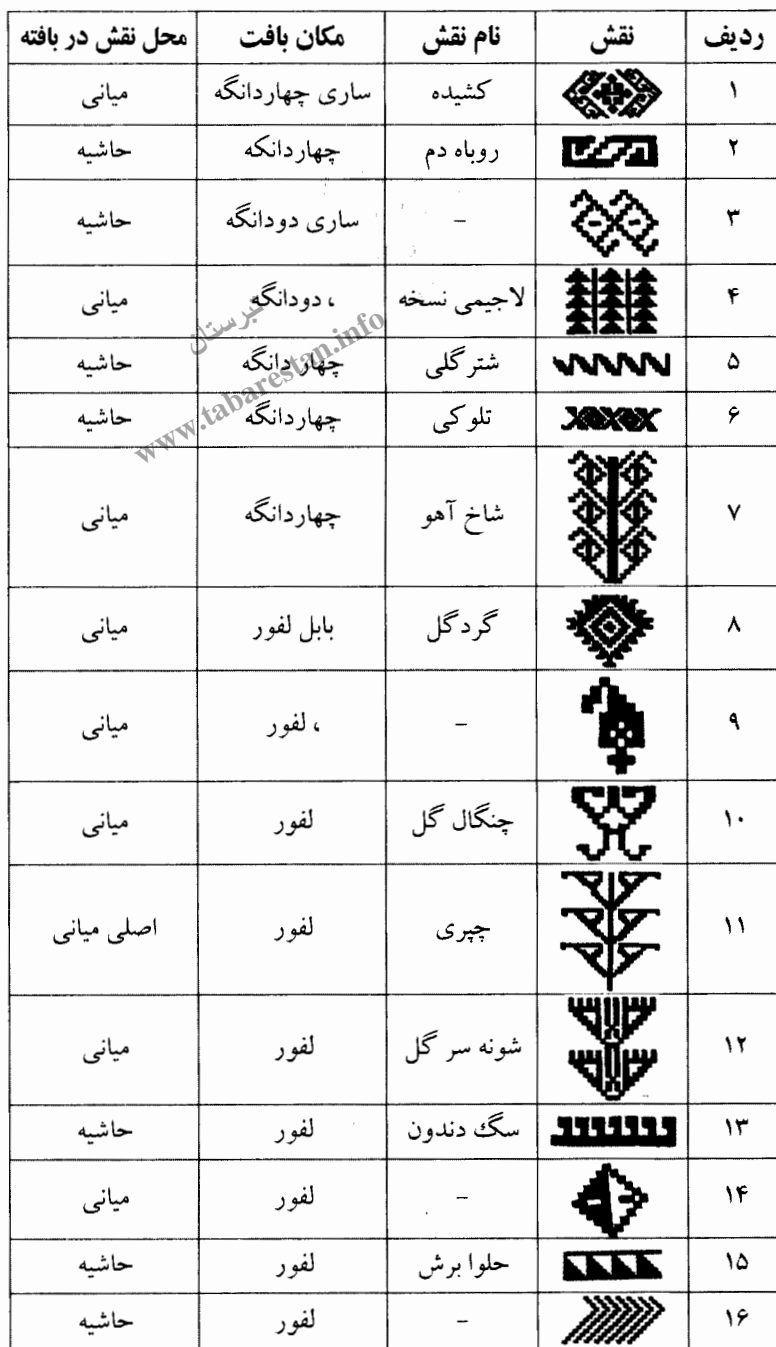 ردیف نقش نام نقش مکان بافت محل نقش در بافته
۱ کشیده ساری چهاردانگه میانی
۲ روباه دم چهاردانکه حاشیه
۳ – ساری دودانگه حاشیه
۴ لاجیمی نسخه ، دودانگه میانی
۵ شتر گلی چهار دانگه حاشیه
۶ تلوکی چهاردانگه حاشیه
۷ شاخ آهو چهاردانگه میانی
۸ گرد گل بابل لفور میانی
۹ – ، لفور میانی
۱۰ چنگال گل لفور میانی
۱۱ چپری لفور اصلی میانی
۱۲ شونه سر گل لفور میانی
۱۳ سگ دندون لفور حاشیه
۱۴ – لفور میانی
۱۵ حلوا برش لفور حاشیه
۱۶ – لفور حاشیه
www.tabarestan.info